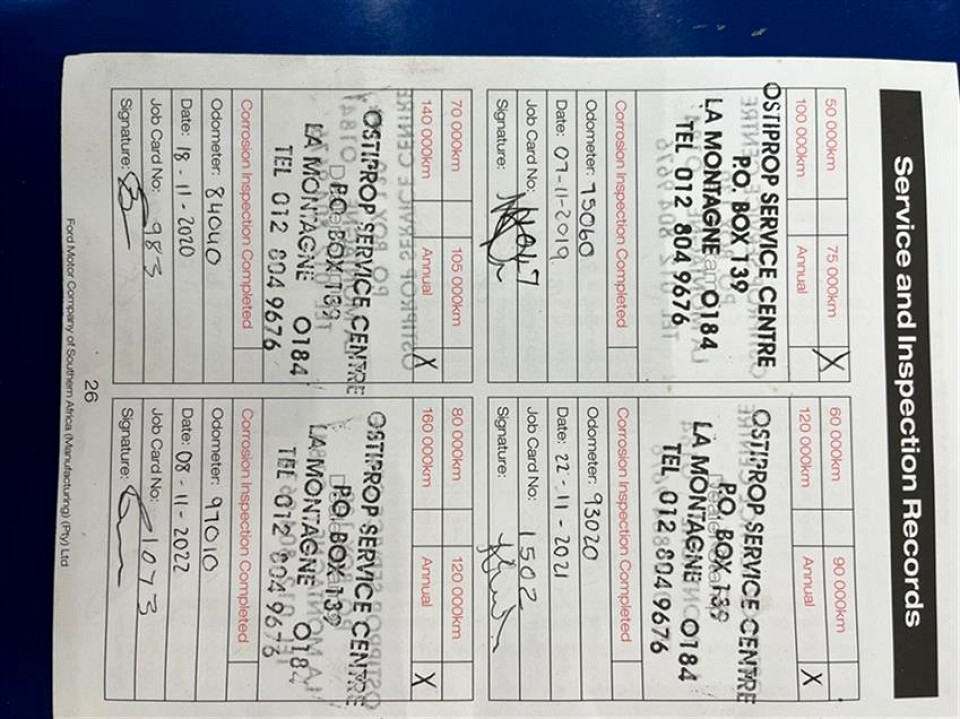 Service and Inspection Records
50 000km 75 000km X
100 000km Annual
OSTIPROP SERVICE CENTRE
P.O. BOX 139
LA MONTAGNE 0184
TEL 012 804 9676
Corrosion Inspection Completed
Odometer: 75060
Date: 07-11-2019
Job Card No:
Signature:
60 000km 90 000km
120 000km Annual X
OSTIPROP SERVICE CENTRE
P.O. BOX 139
LA MONTAGNE 0184
TEL 012 804 9676
Corrosion Inspection Completed
Odometer: 93020
Date: 22-11-2021
Job Card No: 1502
Signature:
70 000km 105 000km
140 000km Annual X
OSTIPROP SERVICE CENTRE
P.O. BOX 139
LA MONTAGNE 0184
TEL 012 804 9676
Corrosion Inspection Completed
Odometer: 84040
Date: 18-11-2020
Job Card No: 983
Signature:
80 000km 120 000km
160 000km Annual X
OSTIPROP SERVICE CENTRE
P.O. BOX 139
LA MONTAGNE 0184
TEL 012 804 9676
Corrosion Inspection Completed
Odometer: 97010
Date: 08-11-2022
Job Card No: 1073
Signature:
26
Ford Motor Company of Southern Africa (Manufacturing) (Pty) Ltd